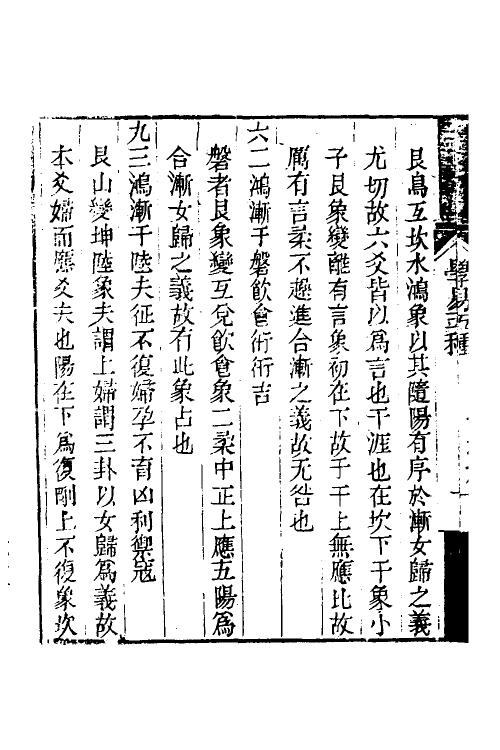 艮鳥互坎水鴻象以其隨陽有序於漸女歸之義
尤切故六爻皆以爲言也干涯也在坎下干象小
子艮象變離有言象初在下故于干上無應比故
厲有言柔不遽進合漸之義故无咎也
六二鴻漸于磐飲食衎衎吉
磐者艮象變互兌飲食象二柔中正上應五陽爲
合漸女歸之義故有此象占也
九三鴻漸于陸夫征不復婦孕不育凶利禦寇
艮山變坤陸象夫謂上婦謂三卦以女歸爲義故
本爻婦而應爻夫也陽在下爲復剛上不復象坎
學易五種